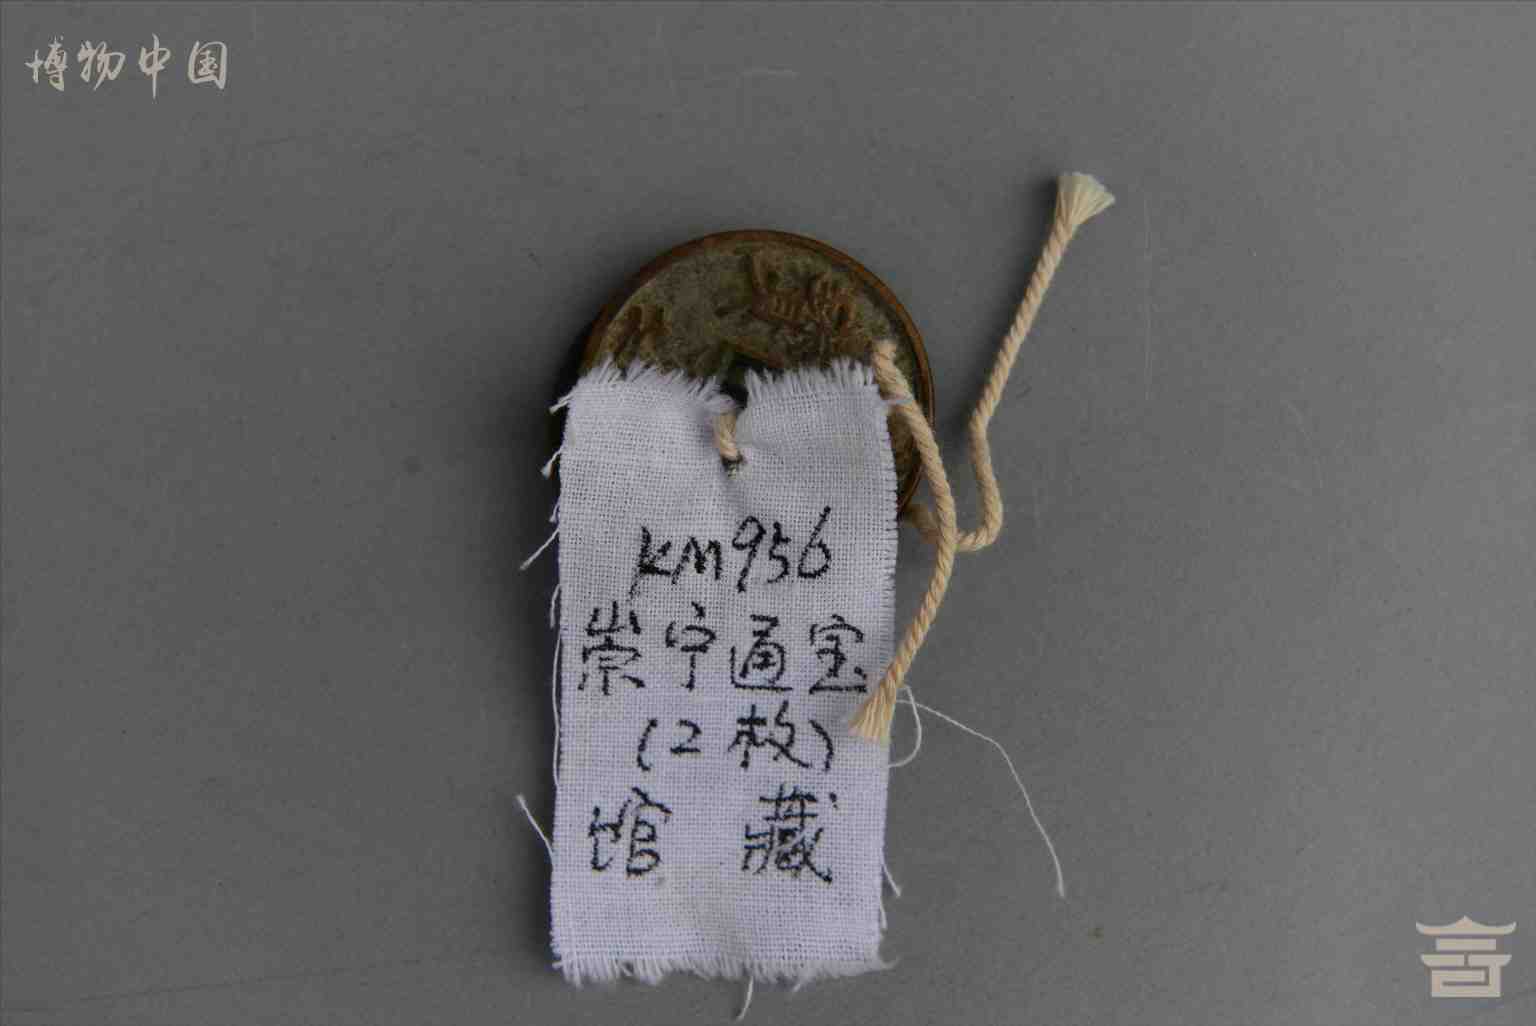 博物中国
KM956
崇宁通宝
(2枚)
馆 藏